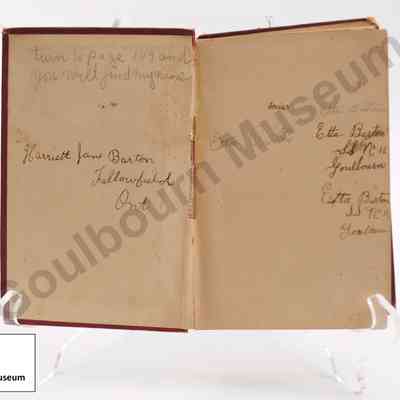 turn to page 109 and
you will find my name
Harriett Jane Barton
Fallowfield
Ont
Etta Barton
SS No 12
Goulbourn
Etta Barton
SS No
Goulbourn Museum
useum